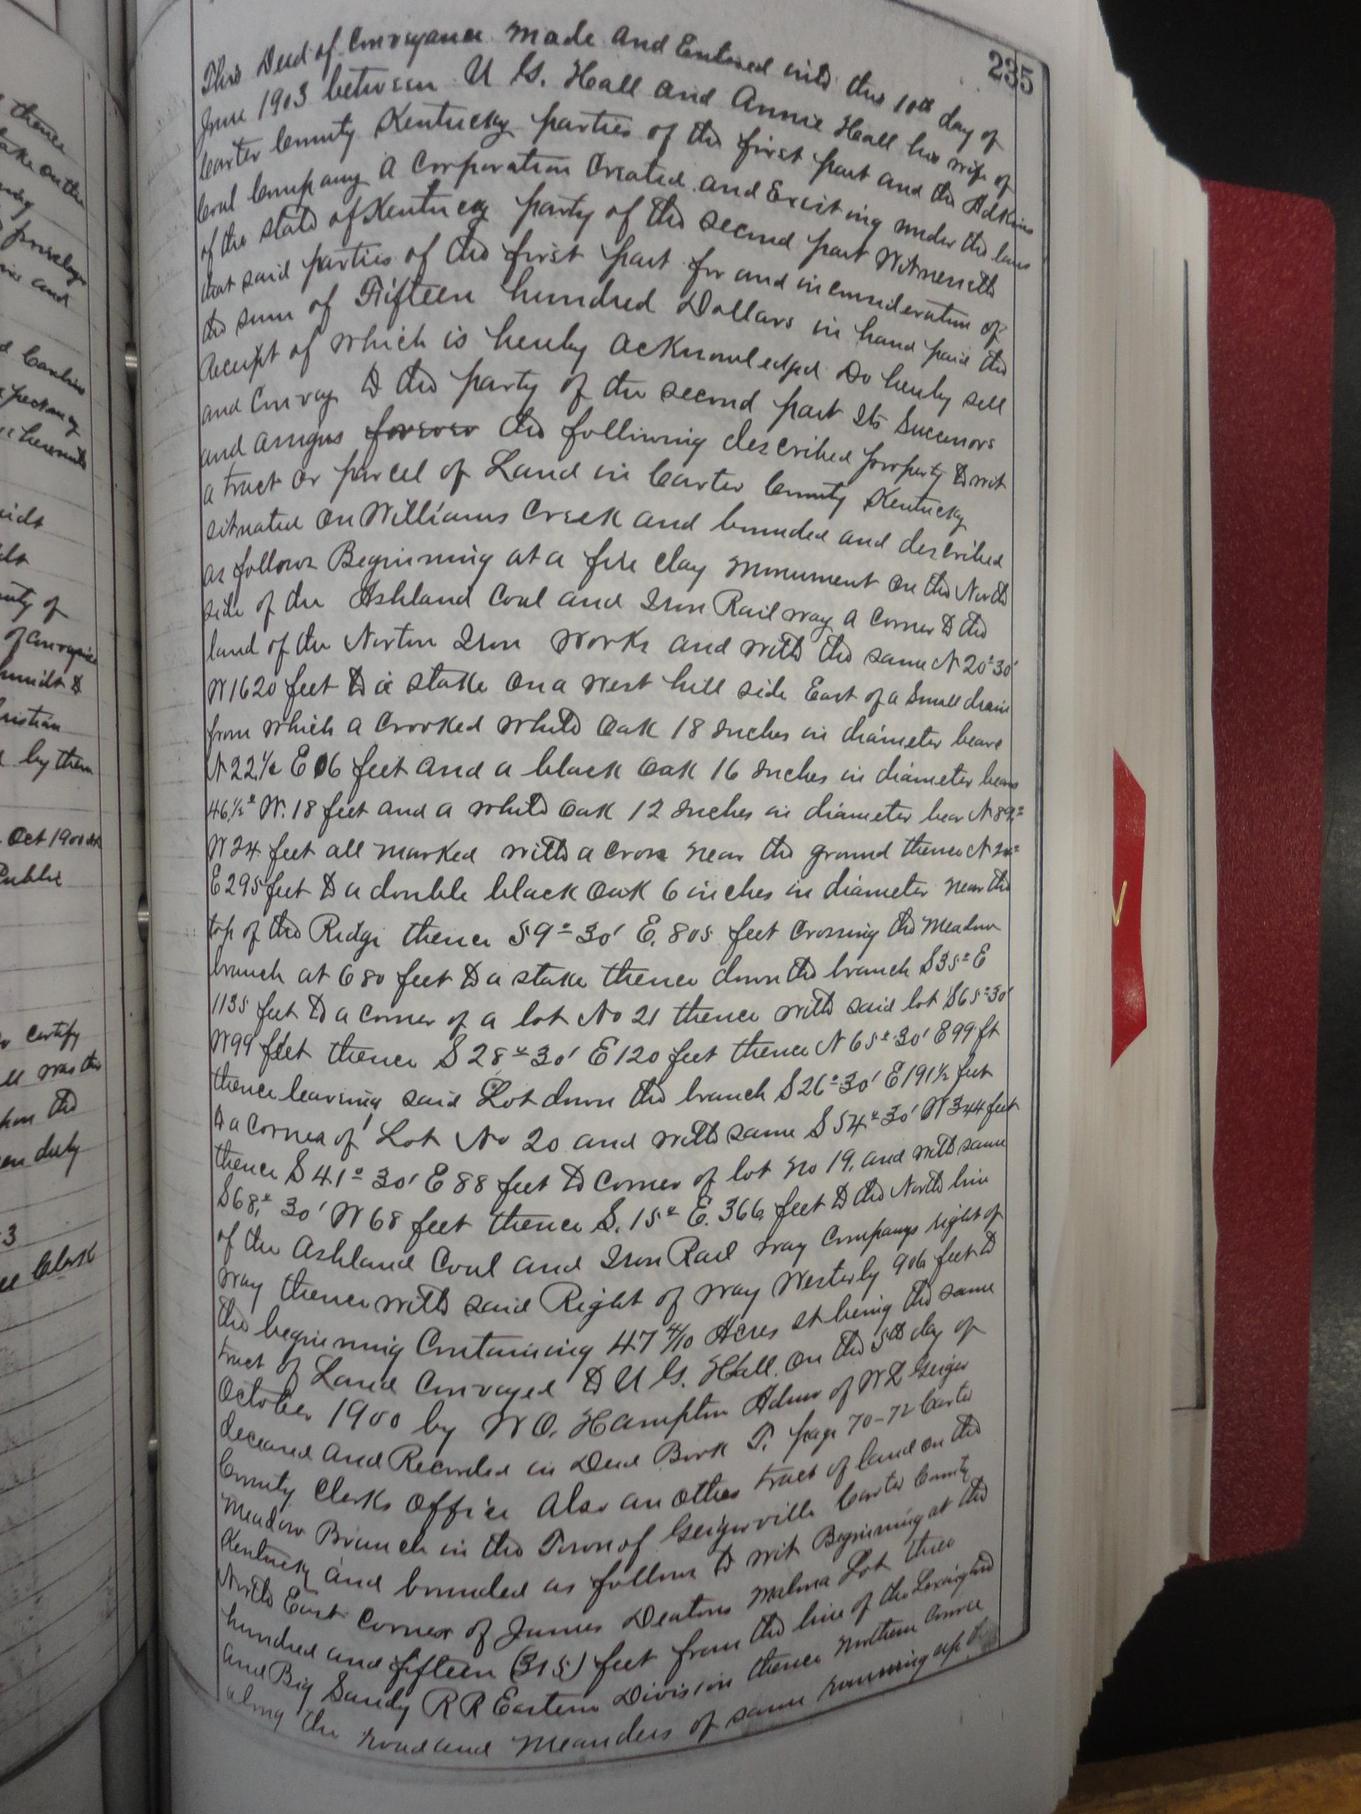 235
This Deed of Conveyance made and Entered into this 10th day of
June 1903 between U G. Hall and Annie Hall his wife of
Carter County Kentucky parties of the first part and the Adkins
Coal Company a Corporation Created and Existing under the laws
of the state of Kentucky party of the second part Witnesseth
that said parties of the first part for and in consideration of
the sum of Fifteen hundred Dollars in hand paid the
Receipt of which is hereby acknowledged Do hereby sell
and Convey to the party of the second part Its Successors
and assigns forever the following described property to wit
a tract or parcel of Land in Carter County Kentucky
situated on Williams Creek and bounded and described
as follows Beginning at a fire clay monument on the North
side of the Ashland Coal and Iron Railway a corner to the
land of the Norton Iron Works and with the same N 20° 30'
W 1620 feet to a stake on a west hill side East of a small drain
from which a crooked white oak 18 Inches in diameter bears
N 22 1/2 E 06 feet and a black oak 16 Inches in diameter bears
46 1/2° W. 18 feet and a white oak 12 Inches in diameter bear N 89°
W 24 feet all marked with a cross near the ground thence N
E 295 feet to a double black oak 6 inches in diameter near the
top of the Ridge thence S 9° 30' E. 805 feet crossing the Meadow
branch at 680 feet to a stake thence down the branch S 35° E
1135 feet to a corner of a lot No 21 thence with said lot S 65° 30'
W 99 feet thence S 28° 30' E 120 feet thence N 65° 30' E 99 ft
thence leaving said Lot down the branch S 26° 30' E 191 1/2 feet
to a corner of Lot No 20 and with same S 54° 30' W 344 feet
thence S 41° 30' E 88 feet to corner of lot no 19, and with same
S 68° 30' W 68 feet thence S. 15° E. 366 feet to the North line
of the Ashland Coal and Iron Rail way Companys right of
way thence with said Right of way Westerly 906 feet to
the beginning Containing 47 4/10 Acres It being the same
tract of Land Conveyed to U G. Hall on the 5th day of
October 1900 by W O. Hampton Admr of W L Geiger
deceased and Recorded in Deed Book T. page 70-72 Carter
County Clerks Office Also another tract of land on the
Meadow Branch in the Town of Geigerville Carter County
Kentucky and bounded as follows to wit Beginning at the
North East Corner of James Deatons Lot three
hundred and fifteen (315) feet from the line of the Lexington
and Big Sandy R R Eastern Division thence Northern Course
along the road and Meanders of same running up
there
and
Oct 1900
Public
certify
was the
duly
by them